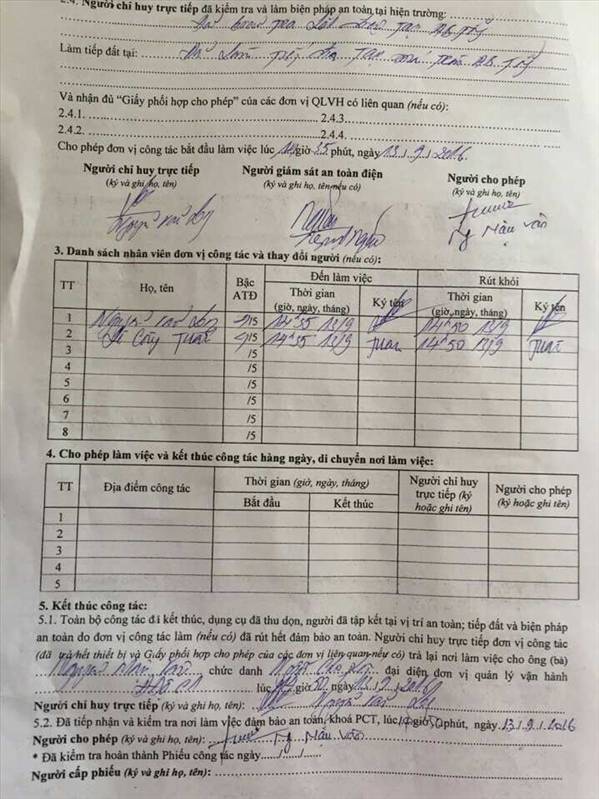 2.4. Người chỉ huy trực tiếp đã kiểm tra và làm biện pháp an toàn tại hiện trường:
Làm tiếp đất tại:
Và nhận đủ “Giấy phối hợp cho phép” của các đơn vị QLVH có liên quan (nếu có):
2.4.1. 2.4.3.
2.4.2. 2.4.4.
Cho phép đơn vị công tác bắt đầu làm việc lúc giờ 35 phút, ngày 13 / 9 / 2016
Người chỉ huy trực tiếp Người giám sát an toàn điện Người cho phép
(ký và ghi họ, tên) (ký và ghi họ, tên nếu có) (ký và ghi họ, tên)
3. Danh sách nhân viên đơn vị công tác và thay đổi người (nếu có):
TT Họ, tên Bậc ATĐ Đến làm việc Rút khỏi
Thời gian (giờ, ngày, tháng) Ký tên Thời gian (giờ, ngày, tháng) Ký tên
1 /5 14h35 13/9 14h50 13/9
2 /5 14h35 13/9 14h50 13/9
3 /5
4 /5
5 /5
6 /5
7 /5
8 /5
4. Cho phép làm việc và kết thúc công tác hàng ngày, di chuyển nơi làm việc:
TT Địa điểm công tác Thời gian (giờ, ngày, tháng) Người chỉ huy trực tiếp (ký hoặc ghi tên) Người cho phép (ký hoặc ghi tên)
Bắt đầu Kết thúc
1
2
3
4
5
5. Kết thúc công tác:
5.1. Toàn bộ công tác đã kết thúc, dụng cụ đã thu dọn, người đã tập kết tại vị trí an toàn; tiếp đất và biện pháp
an toàn do đơn vị công tác làm (nếu có) đã rút hết đảm bảo an toàn. Người chỉ huy trực tiếp đơn vị công tác
(đã trả hết thiết bị và Giấy phối hợp cho phép của các đơn vị liên quan nếu có) trả lại nơi làm việc cho ông (bà)
chức danh đại diện đơn vị quản lý vận hành
lúc giờ 50, ngày 13 / 9 / 2016
Người chỉ huy trực tiếp (ký và ghi họ, tên):
5.2. Đã tiếp nhận và kiểm tra nơi làm việc đảm bảo an toàn, khoá PCT, lúc giờ phút, ngày 13 / 9 / 2016
Người cho phép (ký và ghi họ, tên):
* Đã kiểm tra hoàn thành Phiếu công tác ngày / /
Người cấp phiếu (ký và ghi họ, tên):